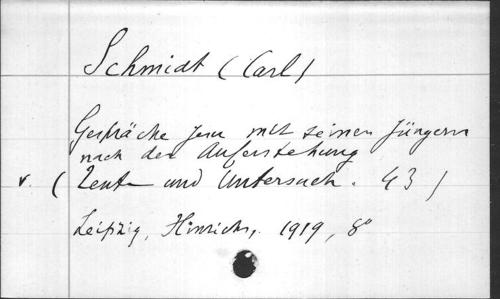 Schmidt (Carl)
Gespräche Jesu mit seinen Jüngern
nach der Auferstehung
v. (Texte und Untersuch. 43)
Leipzig, Hinrichs, 1919, 8°